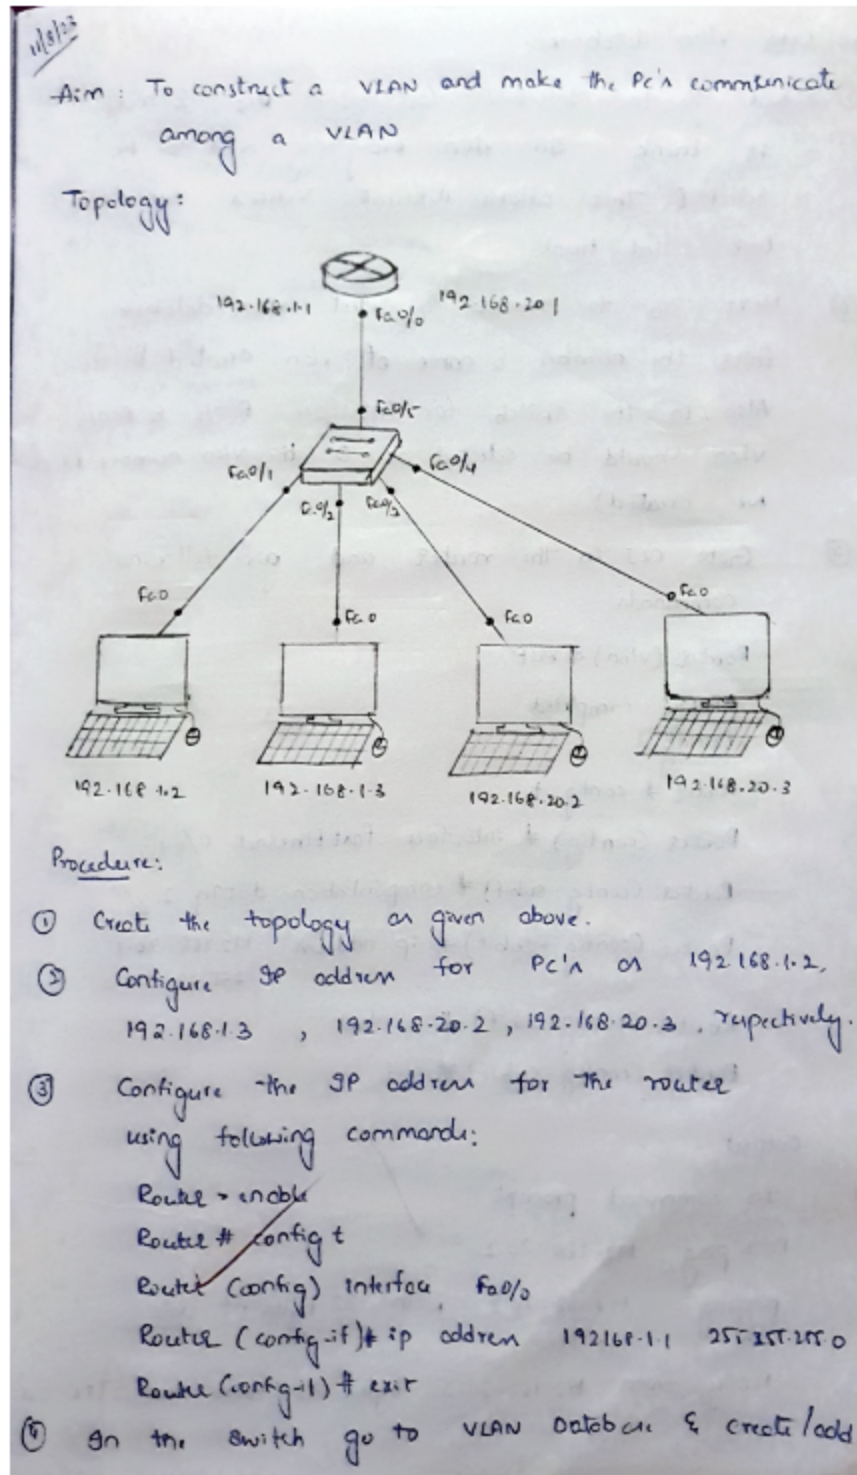 11/8/23
Aim : To construct a VLAN and make the Pc's communicate
among a VLAN
Topology:
192.168.1.1
192.168.20.1
Fa0/0
Fa0/5
Fa0/1
Fa0/2
Fa0/3
Fa0/4
Fa0
Fa0
Fa0
Fa0
192.168.1.2
192.168.1.3
192.168.20.2
192.168.20.3
Procedure:
① Create the topology as given above.
② Configure IP address for PC's as 192.168.1.2,
192.168.1.3 , 192.168.20.2 , 192.168.20.3 , respectively.
③ Configure the IP address for the router
using following commands:
Router > enable
Router # config t
Router (config) interface fa0/0
Router (config-if)# ip address 192168.1.1 255.255.255.0
Router (config-if) # exit
④ In the switch go to VLAN Database & create/add